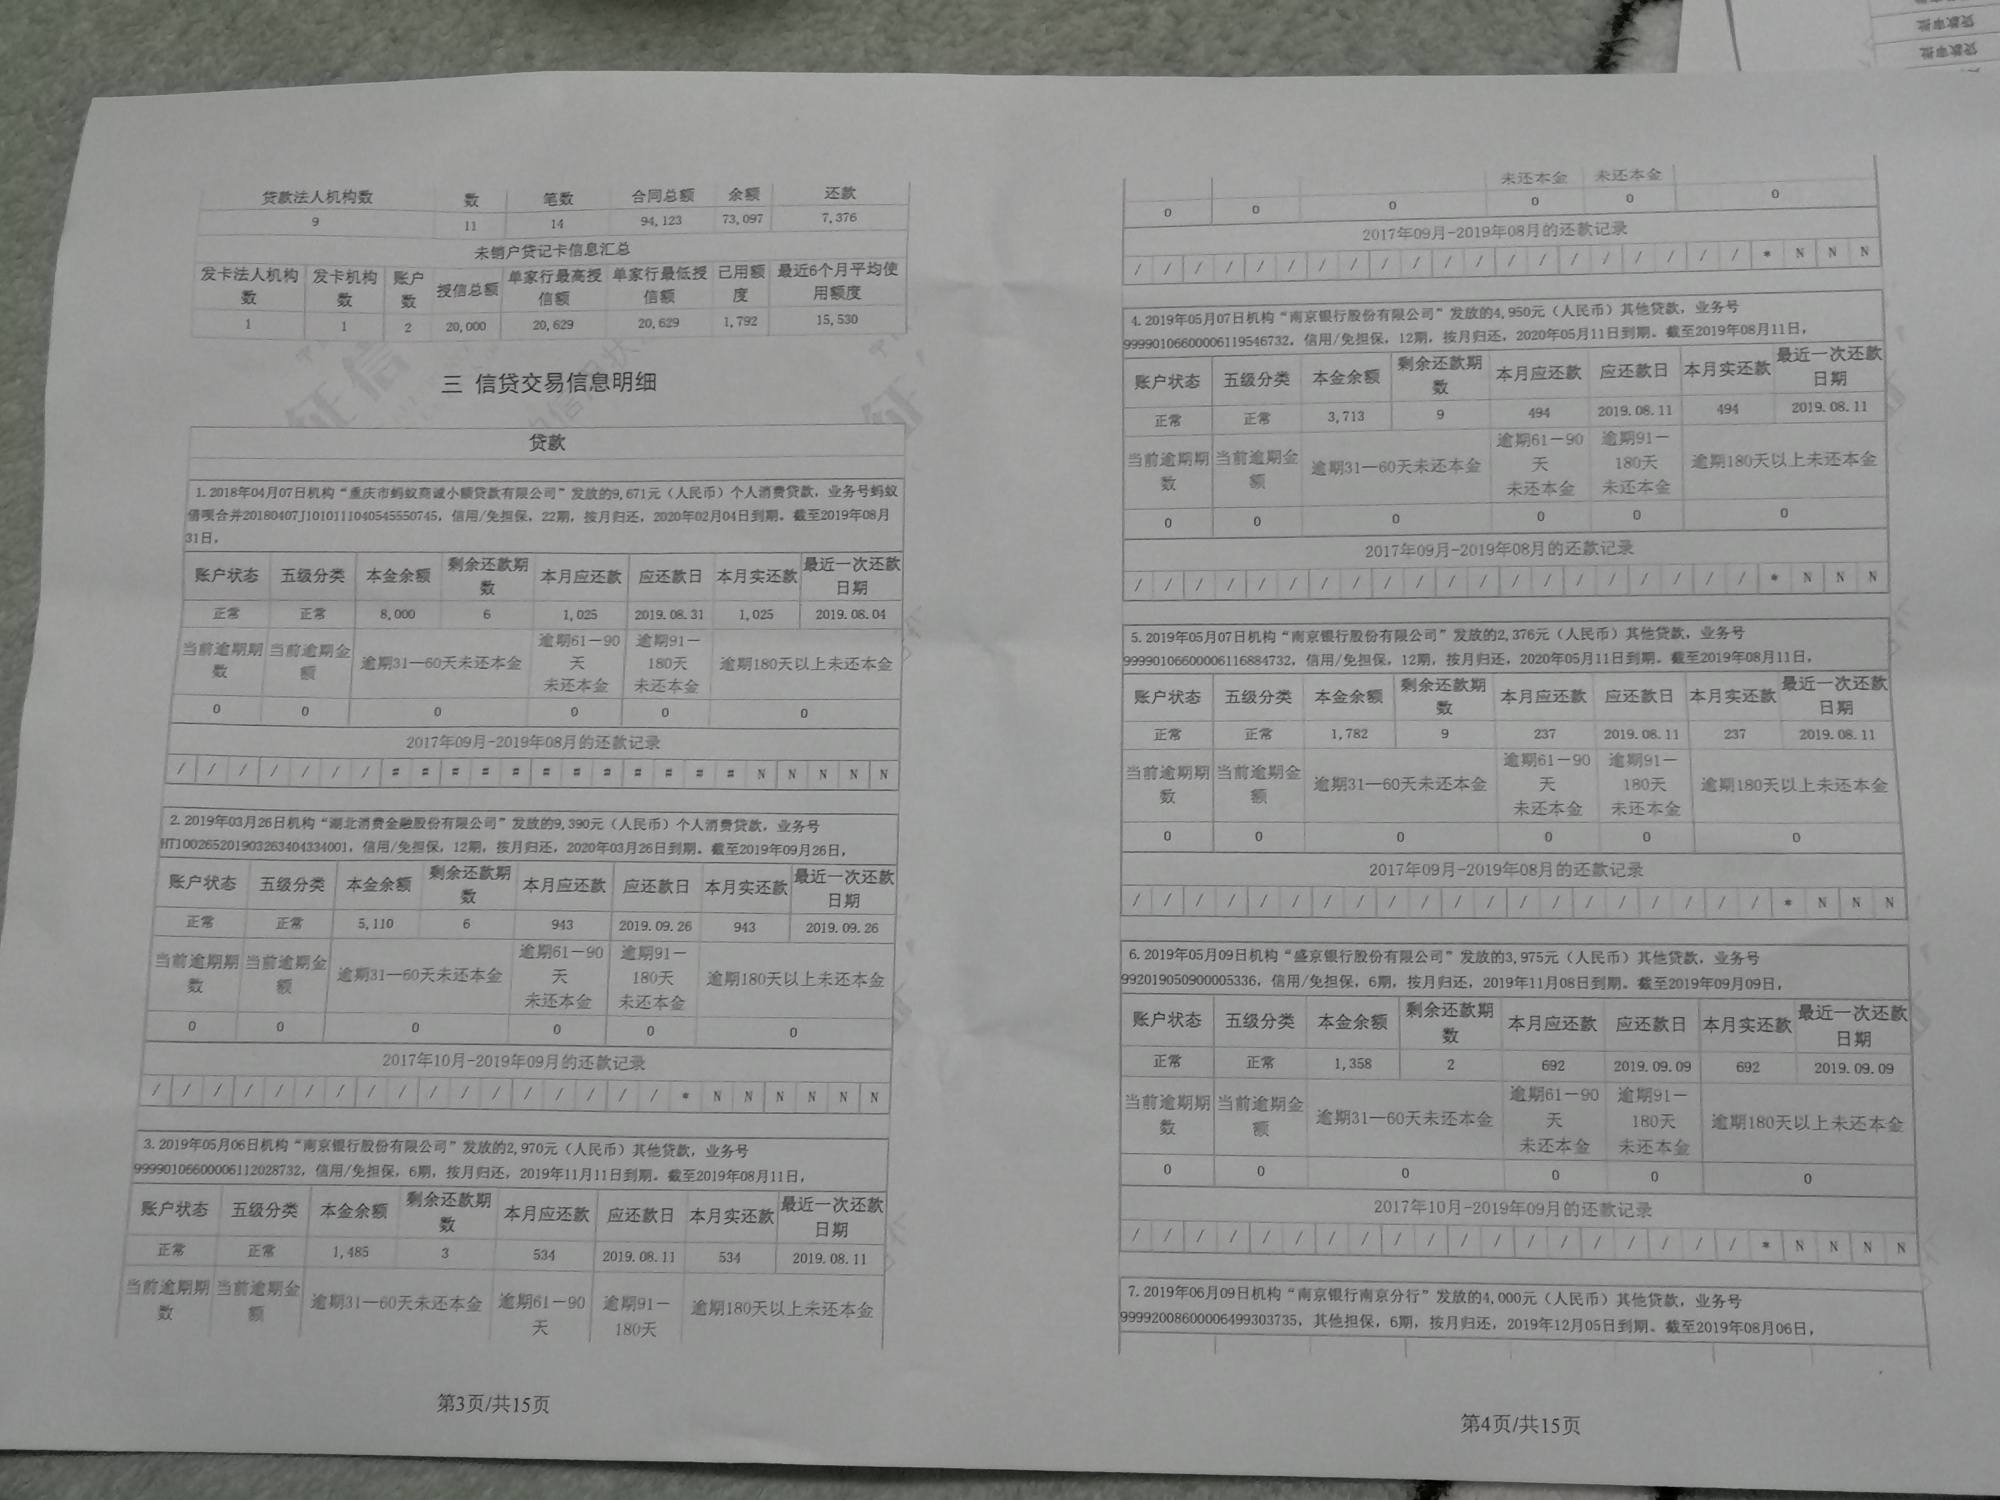 贷款法人机构数 数 笔数 合同总额 余额 还款
9 11 14 94,123 73,097 7,376
未销户贷记卡信息汇总
发卡法人机构数 发卡机构数 账户数 授信总额 单家行最高授信额 单家行最低授信额 已用额度 最近6个月平均使用额度
1 1 2 20,000 20,629 20,629 1,792 15,530
三 信贷交易信息明细
贷款
1.2018年04月07日机构“重庆市蚂蚁商诚小额贷款有限公司”发放的9,671元（人民币）个人消费贷款，业务号蚂蚁
借呗合并20180407J1010111040545550745，信用/免担保，22期，按月归还，2020年02月04日到期。截至2019年08月
31日，
账户状态 五级分类 本金余额 剩余还款期数 本月应还款 应还款日 本月实还款 最近一次还款日期
正常 正常 8,000 6 1,025 2019.08.31 1,025 2019.08.04
当前逾期期数 当前逾期金额 逾期31—60天未还本金 逾期61－90天未还本金 逾期91－180天未还本金 逾期180天以上未还本金
0 0 0 0 0 0
2017年09月-2019年08月的还款记录
/ / / / / / / # # # # # # # # # # # # N N N N N
2.2019年03月26日机构“湖北消费金融股份有限公司”发放的9,390元（人民币）个人消费贷款，业务号
HT100265201903263404334001，信用/免担保，12期，按月归还，2020年03月26日到期。截至2019年09月26日，
账户状态 五级分类 本金余额 剩余还款期数 本月应还款 应还款日 本月实还款 最近一次还款日期
正常 正常 5,110 6 943 2019.09.26 943 2019.09.26
当前逾期期数 当前逾期金额 逾期31—60天未还本金 逾期61－90天未还本金 逾期91－180天未还本金 逾期180天以上未还本金
0 0 0 0 0 0
2017年10月-2019年09月的还款记录
/ / / / / / / / / / / / / / / / / * N N N N N N
3.2019年05月06日机构“南京银行股份有限公司”发放的2,970元（人民币）其他贷款，业务号
99990106600006112028732，信用/免担保，6期，按月归还，2019年11月11日到期。截至2019年08月11日，
账户状态 五级分类 本金余额 剩余还款期数 本月应还款 应还款日 本月实还款 最近一次还款日期
正常 正常 1,485 3 534 2019.08.11 534 2019.08.11
当前逾期期数 当前逾期金额 逾期31—60天未还本金 逾期61－90天 逾期91－180天 逾期180天以上未还本金
第3页/共15页
未还本金 未还本金
0 0 0 0 0 0
2017年09月-2019年08月的还款记录
/ / / / / / / / / / / / / / / / / / / / * N N N
4.2019年05月07日机构“南京银行股份有限公司”发放的4,950元（人民币）其他贷款，业务号
99990106600006119546732，信用/免担保，12期，按月归还，2020年05月11日到期。截至2019年08月11日，
账户状态 五级分类 本金余额 剩余还款期数 本月应还款 应还款日 本月实还款 最近一次还款日期
正常 正常 3,713 9 494 2019.08.11 494 2019.08.11
当前逾期期数 当前逾期金额 逾期31—60天未还本金 逾期61－90天未还本金 逾期91－180天未还本金 逾期180天以上未还本金
0 0 0 0 0 0
2017年09月-2019年08月的还款记录
/ / / / / / / / / / / / / / / / / / / / * N N N
5.2019年05月07日机构“南京银行股份有限公司”发放的2,376元（人民币）其他贷款，业务号
99990106600006116884732，信用/免担保，12期，按月归还，2020年05月11日到期。截至2019年08月11日，
账户状态 五级分类 本金余额 剩余还款期数 本月应还款 应还款日 本月实还款 最近一次还款日期
正常 正常 1,782 9 237 2019.08.11 237 2019.08.11
当前逾期期数 当前逾期金额 逾期31—60天未还本金 逾期61－90天未还本金 逾期91－180天未还本金 逾期180天以上未还本金
0 0 0 0 0 0
2017年09月-2019年08月的还款记录
/ / / / / / / / / / / / / / / / / / / / * N N N
6.2019年05月09日机构“盛京银行股份有限公司”发放的3,975元（人民币）其他贷款，业务号
992019050900005336，信用/免担保，6期，按月归还，2019年11月08日到期。截至2019年09月09日，
账户状态 五级分类 本金余额 剩余还款期数 本月应还款 应还款日 本月实还款 最近一次还款日期
正常 正常 1,358 2 692 2019.09.09 692 2019.09.09
当前逾期期数 当前逾期金额 逾期31—60天未还本金 逾期61－90天未还本金 逾期91－180天未还本金 逾期180天以上未还本金
0 0 0 0 0 0
2017年10月-2019年09月的还款记录
/ / / / / / / / / / / / / / / / / / / * N N N N
7.2019年06月09日机构“南京银行南京分行”发放的4,000元（人民币）其他贷款，业务号
99992008600006499303735，其他担保，6期，按月归还，2019年12月05日到期。截至2019年08月06日，
第4页/共15页
贷款审批
贷款审批